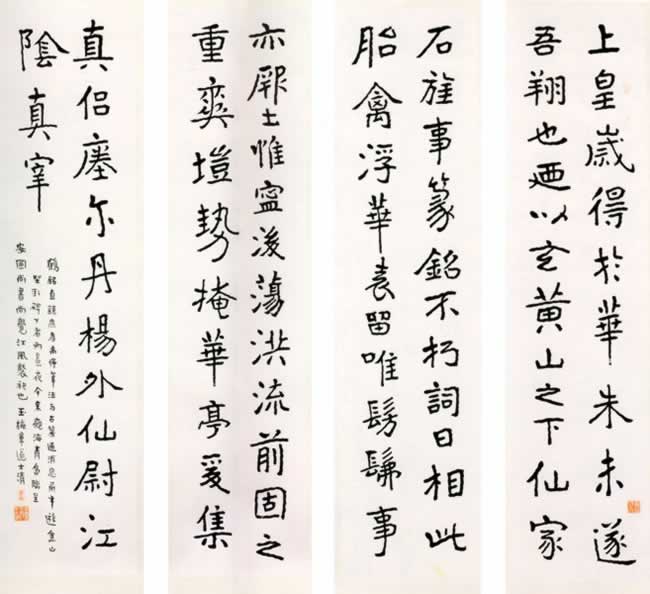 上皇歲得於華朱未遂
吾翔也廼以玄黃山之下仙家
石旌事篆銘不朽詞曰相此
胎禽浮華表留唯髣髴事
亦厥土惟寍後蕩洪流前固之
重爽塏勢掩華亭爰集
真侶瘞尔丹楊外仙尉江
陰真宰
江風襲袂也玉梅華盦道士清